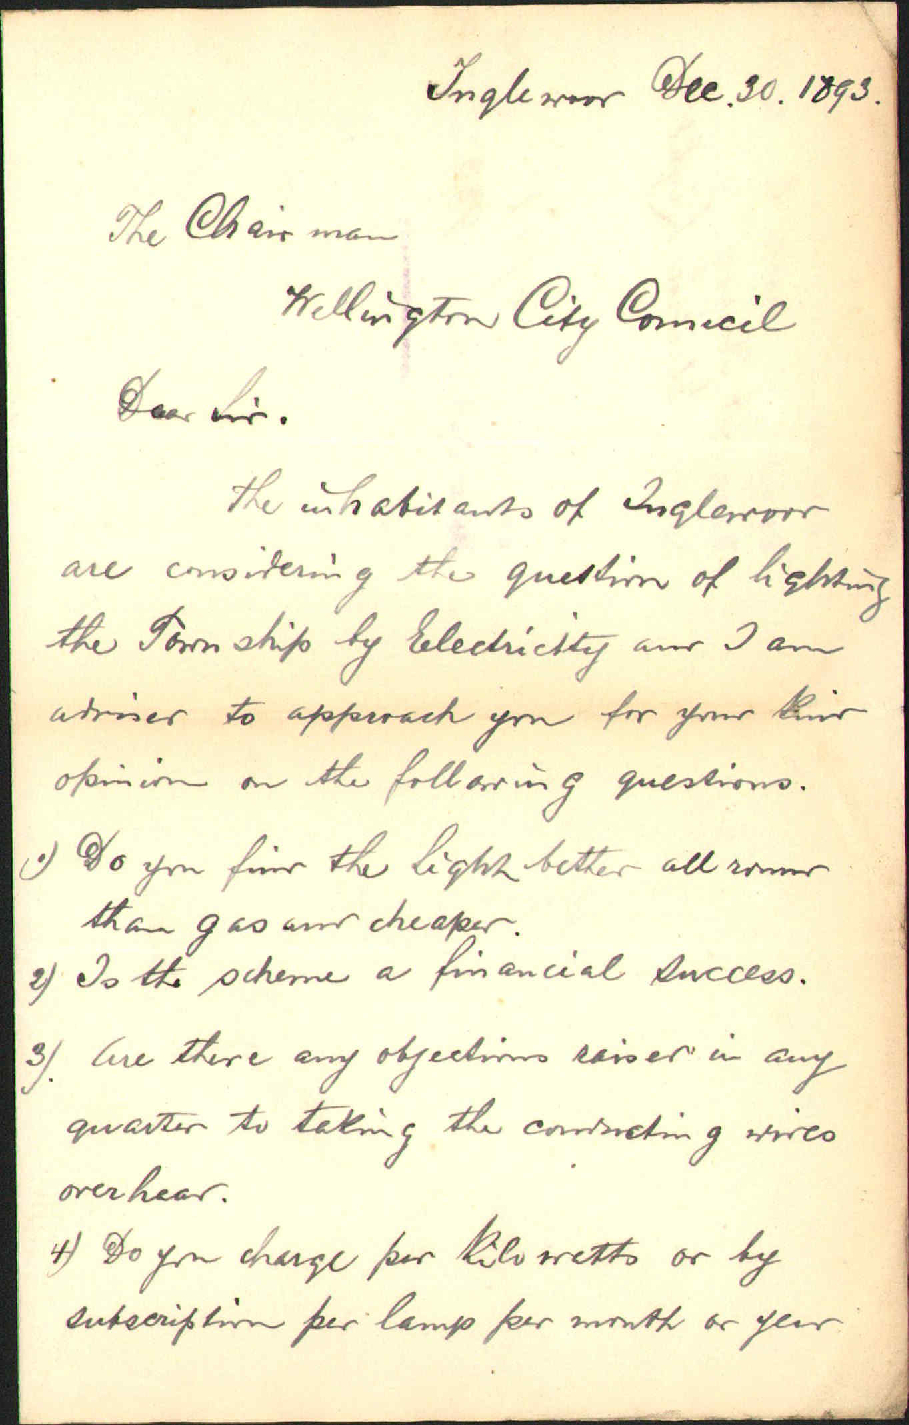 Inglewood Dec. 30. 1893.
The Chairman
Wellington City Council
Dear Sir.
the inhabitants of Inglewood
are considering the question of lighting
the Township by Electricity and I am
advised to approach you for your kind
opinion on the following questions.
1) Do you find the light better all round
than gas and cheaper.
2) Is the scheme a financial success.
3). Are there any objections raised in any
quarter to taking the conducting wires
overhead.
4) Do you charge per Kilowatts or by
subscription per lamp per month or year